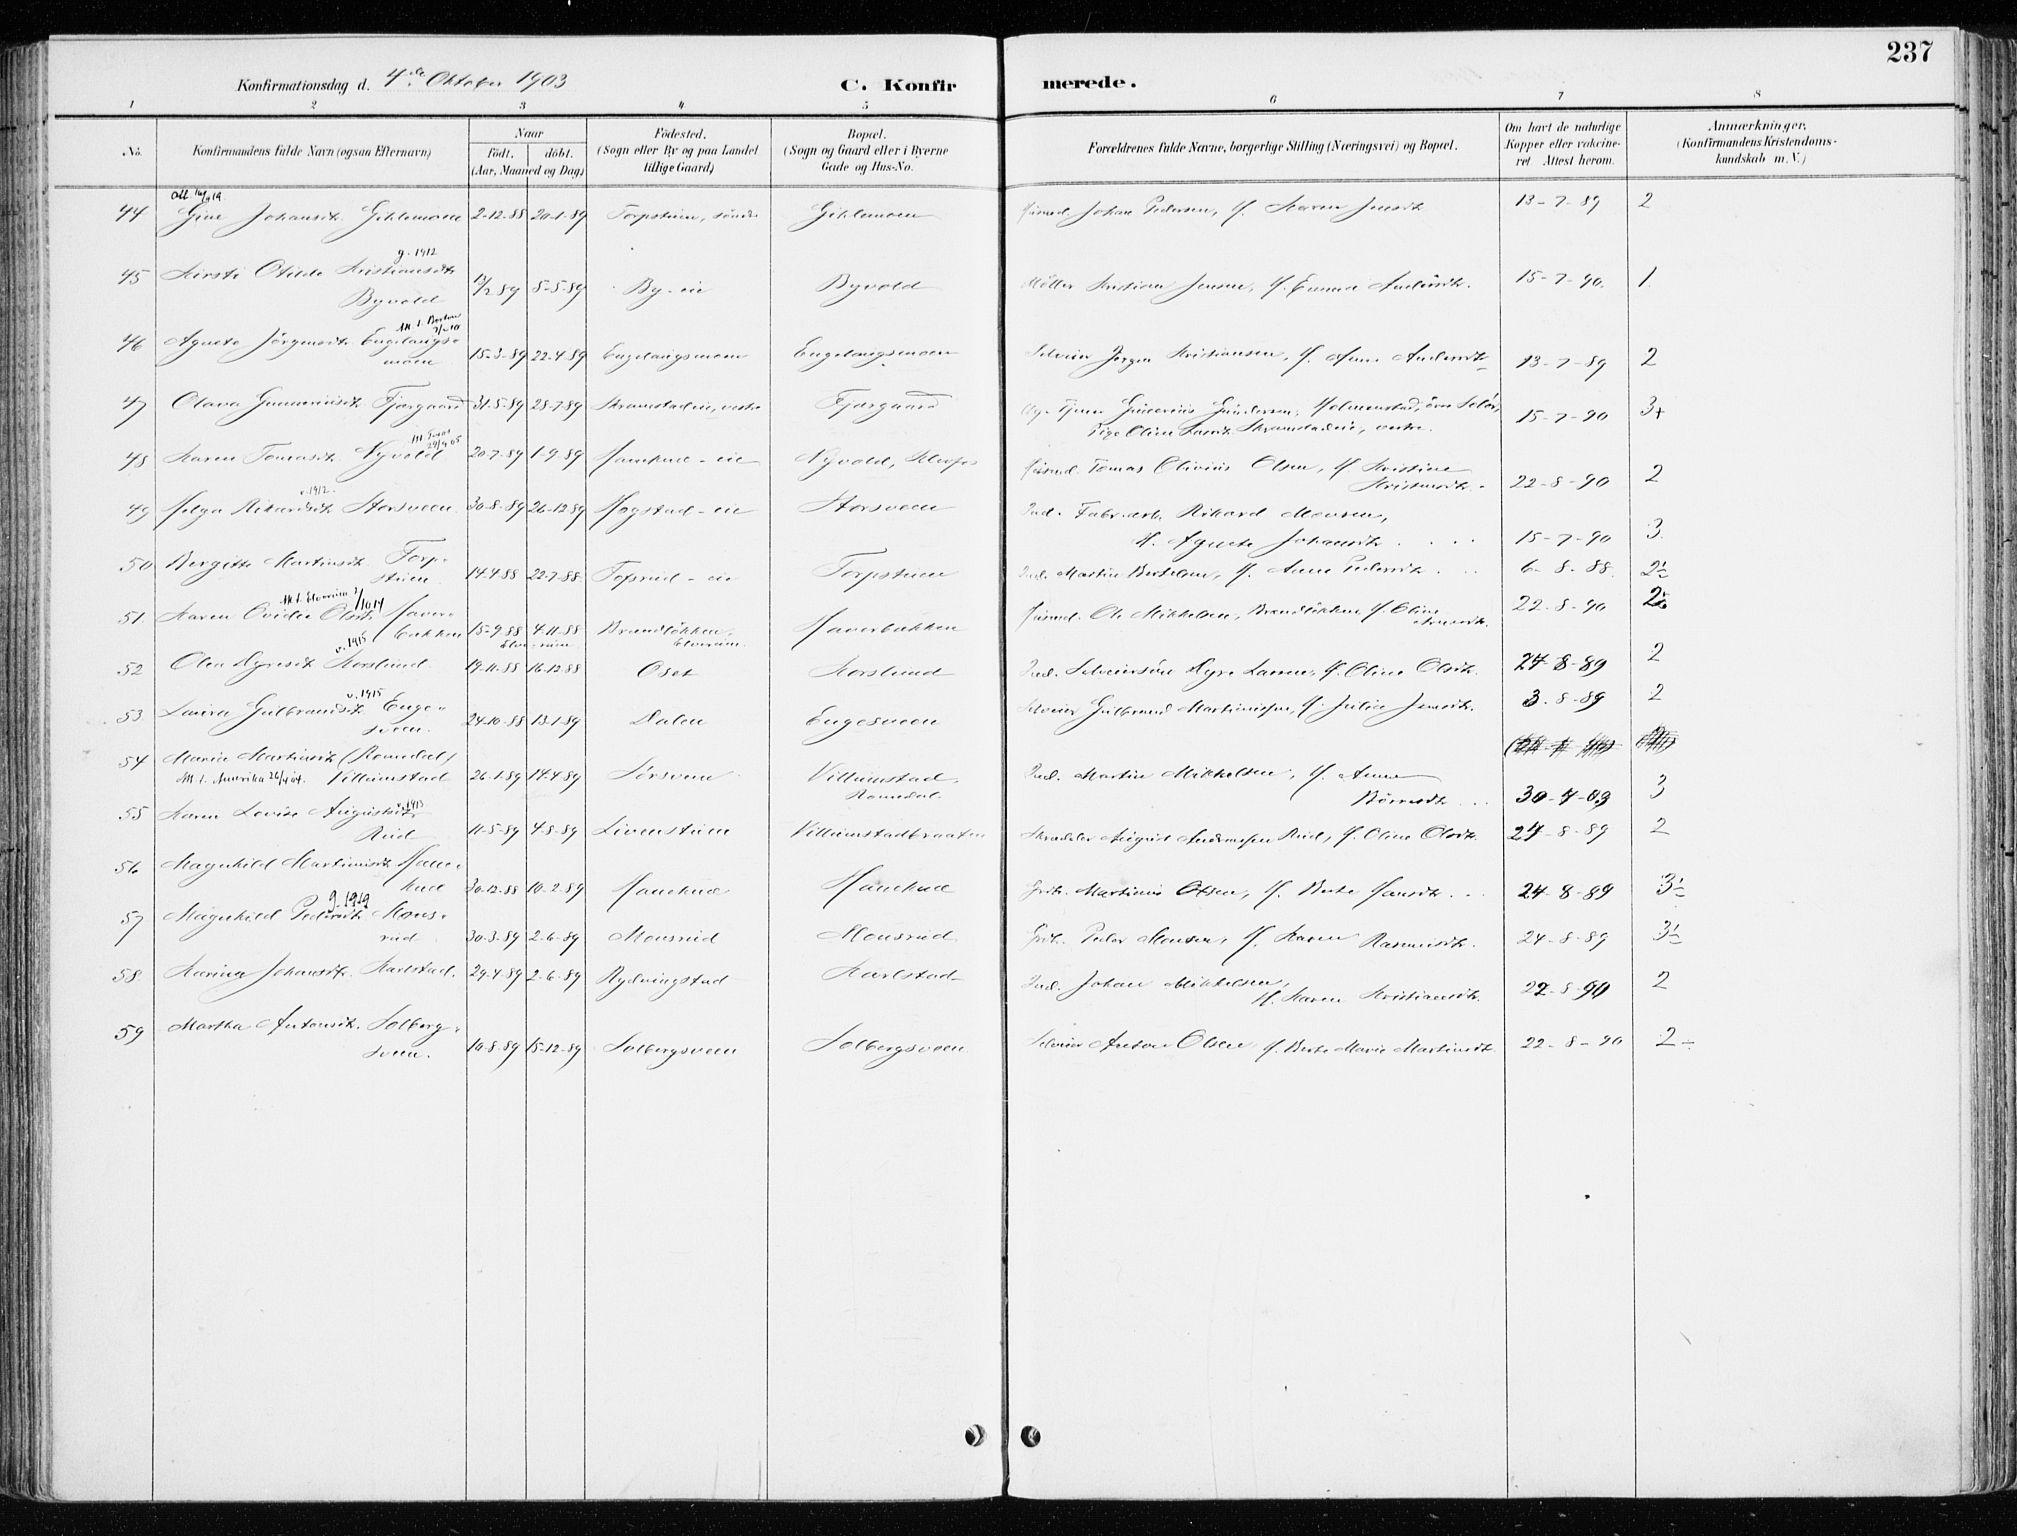 237
Konfirmationsdag d. 4de Oktober 1903
C. Konfirmerede.
1 2 3 4 5 6 7 8
No. Konfirmandens fulde Navn (ogsaa Efternavn) Naar födt. döbt. (Aar, Maaned og Dag) Födested. (Sogn eller By og paa Landet tillige Gaard) Bopæl. (Sogn og Gaard eller i Byerne Gade og Hus-No. Forældrenes fulde Navne, borgerlige Stilling (Næringsvei) og Bopæl. Om havt de naturlige Kopper eller vakcineret. Attest herom. Anmærkninger, (Konfirmandens Kristendomskundskab m. V.)
44 Gine Johansdt. Gihlemoen 2-12-88 20-1-89 Torpstuen, söndre Gihlemoen Johan Pedersen, H. Karen Jensdt. 13-7-89 2
g. 1912
45 Kirsti Otilde Kristiansdt. Byvold 89 5-5-89 By-eie Byvold Möller Kristian Jensen, H. Emma Andersdt. 15-7-90. 1.
46 Agnete Jörgensdt. Engelaugsmoen 15-3-89 22-4-89 Engelaugsmoen Engelaugsmoen Selveier Jörgen Kristiansen, H. Anne Andersdt. 13-7-89 2
47 Olava Gunneriusdt. Fjærgaard 31-5-89 28-7-89 Skramstadeie, vestre Fjærgaard Gunerius Gundersen, Pige Oline Larsdt. Skramstadeie, vestre. 15-7-90 3+
48 Karen Tomasdt. Nyvold 20-7-89 1-9-89 Nyvold, Tomas Olivius Olsen, H. Kristine Kristiansdt. 22-8-90 2
v. 1912.
49 Helga Rikardsdt. Storsveen 30-8-89 26-12-89 Høgstad-eie Storsveen Ind. Fabr.arb. Rikard Monsen, H. Agnete Johansdt. 15-7-90 3
50 Bergitte Martinsdt. Torpstuen 14-4-88 22-7-88 Toprud-eie Torpstuen Ind. Martin Bertelsen, H. Anne Pedersdt. 6-8-88. 2÷
M. t. Elverum
51. Karen Ovidia Olsdt. Haverbakken 15-9-88 4-11-88 Elverum Brændlökken, Elverum. Haverbakken Ole Mikkelsen, Brændlökken, H. Oline 22-8-90 2
v. 1915
52 Olea Syversdt. Korslund 19-11-88 16-12-88 Oset Korslund Ind. Selveiersön Larsen, H. Oline Olsdt. 24-8-89 2
v. 1915
53. Laura Gulbrandsdt. Engesveen 24-10-88 13-1-89 Dalen Engesveen Selveier Gulbrand Martiniusen, H. Julie Jensdt. 3-8-89 2
54 Maria Martinsdt. (Romedal) Villumstad M. t. Amerika 26/4 04. 26-1-89 14-4-89 Sörsveen Villumstad, Romedal. Ind. Martin Mikkelsen, H. Anne 30-4-03 3
v. 1913
55 Karen Lovise Augustsdt. Rud 11-5-89 4-8-89 Livestuen Villumstadbraaten Skrædder August Andreassen Rud, H. Oline Olsdt. 24-8-89 2
56 Magnhild Martiniusdt. 30-12-88 10-2-89 Martinius Olsen, H. Berte Hansdt. 24-8-89 3÷
g. 1919
57 Magnhild Pedersdt. Monsrud 30-3-89 2-6-89 Monsrud Monsrud Peder Monsen, H. Karen Rasmusdt. 24-8-89 3÷
58. Karina Johansdt. Karlstad. 29-4-89 2-6-89 Rydningstad Karlstad Ind. Johan Mikkelsen, H. Karen Kristiansdt. 22-8-90 2
59 Martha Antonsdt. Solbergsveen. 10-8-89 15-12-89 Solbergsveen Solbergsveen Selveier Anton Olsen, H. Berte Marie Martinsdt. 22-8-90 2÷